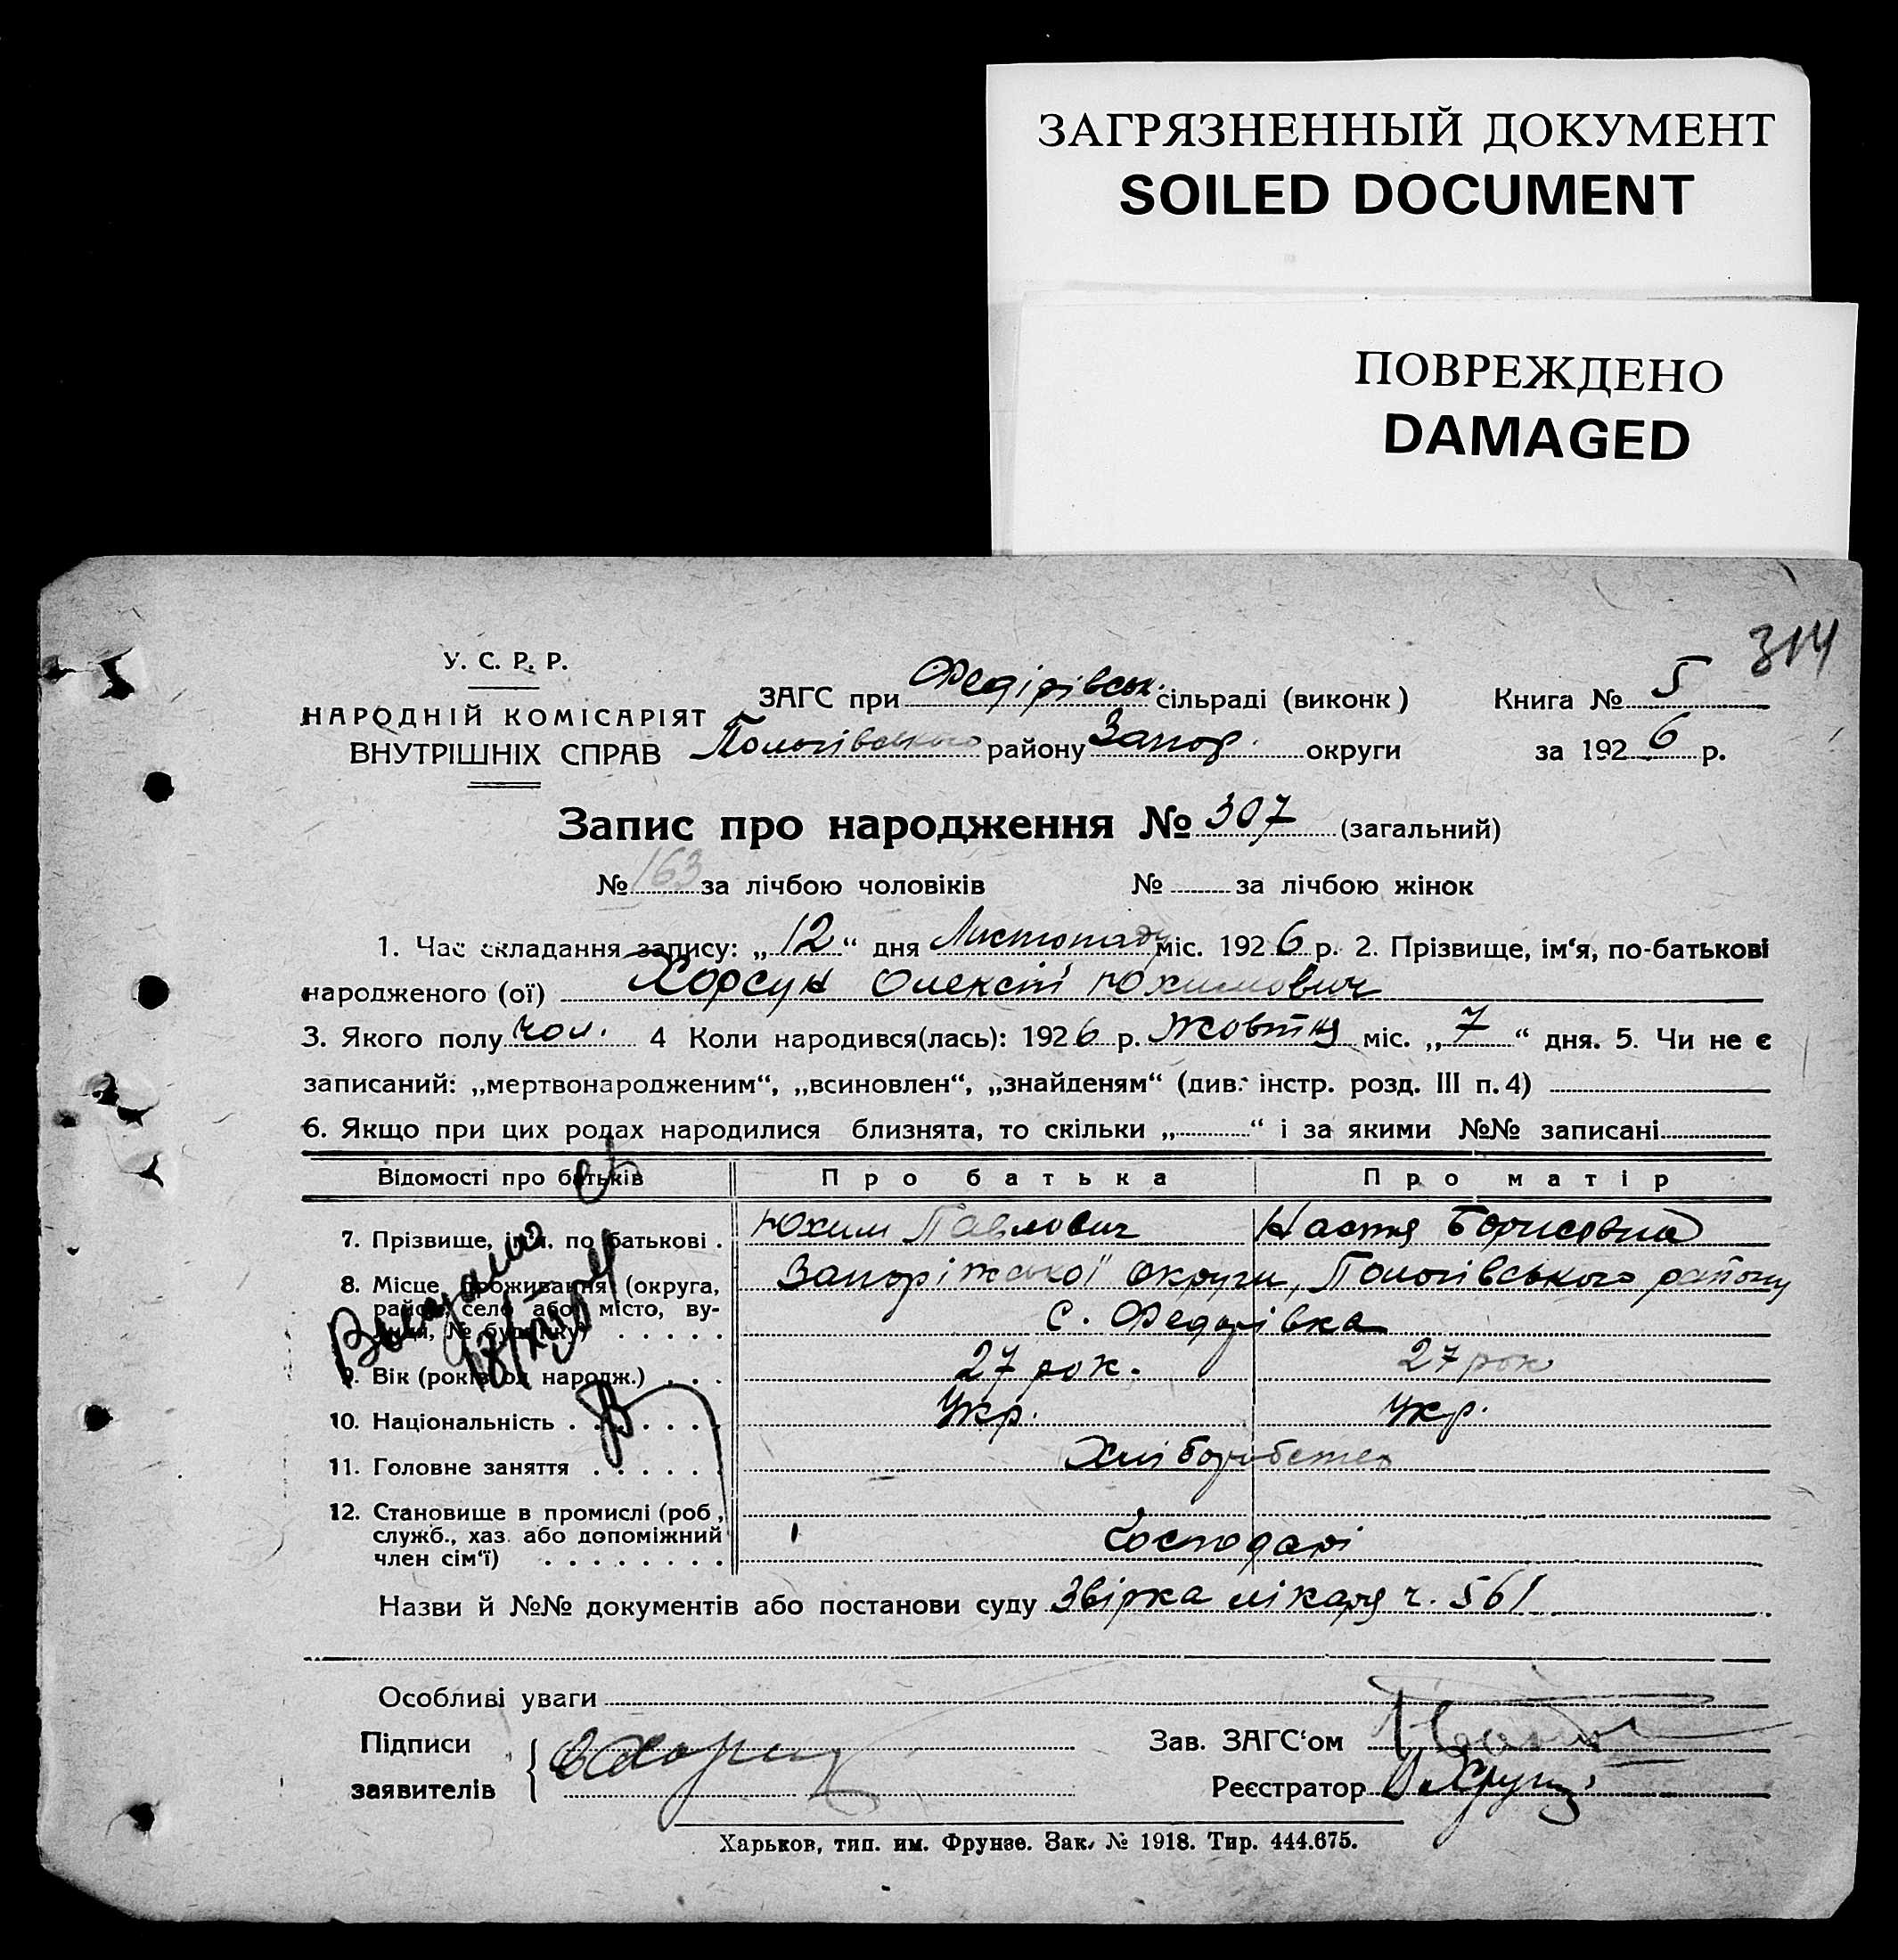 ЗАГРЯЗНЕННЫЙ ДОКУМЕНТ
SOILED DOCUMENT
ПОВРЕЖДЕНО
DAMAGED
314
У. С. Р. Р.
НАРОДНІЙ КОМІСАРІЯТ
ВНУТРІШНІХ СПРАВ
ЗАГС при Федірівськ. сільраді (виконк) Книга № 5
Пологівського району Запор. округи за 1926 р.
Запис про народження № 307 (загальний)
№ 163 за лічбою чоловіків № за лічбою жінок
1. Час складання запису: „12“ дня Листопаду міс. 1926 р. 2. Прізвище, ім‘я, по-батькові
народженого (ої) Хорсун Олексій Юхимович
3. Якого полу чол. 4 Коли народився(лась): 1926 р. Жовтня міс. „7“ дня. 5. Чи не є
записаний: „мертвонародженим“, „всиновлен“, „знайденям“ (див. інстр. розд. III п. 4)
6. Якщо при цих родах народилися близнята, то скільки „ “ і за якими №№ записані
Відомості про батьків Про батька Про матір
7. Прізвище, ім‘я, по батькові . Юхим Павлович Настя Борисовна
8. Місце проживання (округа, Запоріжської округи, Пологівського району
район, село або місто, ву-
лиця, № будинку) . . . . . с. Федорівка
9. Вік (років од народж.) . . . 27 рок. 27 рок
10. Національність . . . . . . . Укр. Укр.
11. Головне заняття . . . . . . Хліборобство
12. Становище в промислі (роб,
служб., хаз. або допоміжний
член сім‘ї) . . . . . . . . Господарі
Назви й №№ документів або постанови суду Звірка лікаря ч. 561
Особливі уваги
Підписи Зав. ЗАГС‘ом
заявителів Реєстратор
Харьков, тип. им. Фрунзе. Зак. № 1918. Тир. 444.675.